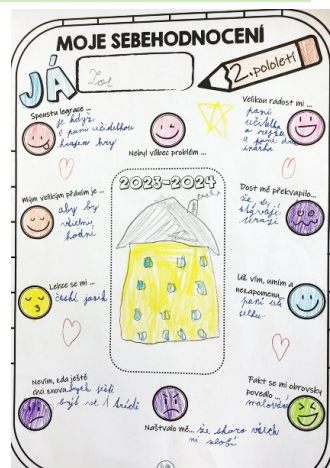 MOJE SEBEHODNOCENÍ
JÁ
Zoe
2. pololetí
Spoustu legrace ...
je když
s paní učitelkou
hrajem hry
Nebyl vůbec problém ...
Velikou radost mi ...
paní
učitelka
a
a paní
Mým velikým přáním je ...
aby byli
všichni
hodní
2023-2024
Dost mě překvapilo...
že
Lehce se mi ...
český jazyk
Už vím, umím a
nezapomenu...
paní uči
telku
Nevím, zda ještě
chci znova
být ve 1 třídě
Naštvalo mě...
že skoro všichni
zlobí
Fakt se mi obrovsky
povedlo ...
malování